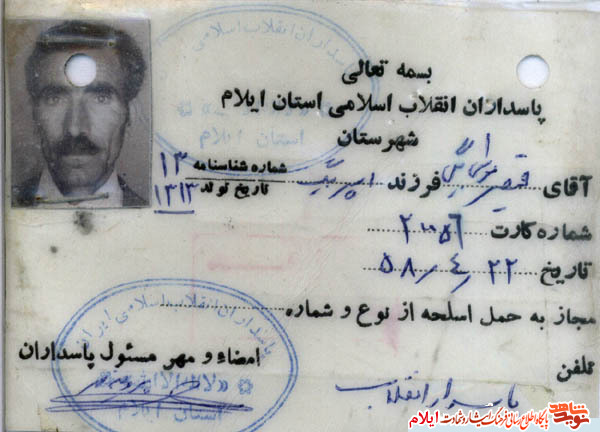 بسمه تعالی
پاسداران انقلاب اسلامی استان ایلام
شهرستان
آقای قیصر فرزند
شماره شناسنامه ۱۳
تاریخ تولد ۱۳۱۳
شماره کارت ۲۰۰۵۶
تاریخ ۲۲ / ۴ / ۵۸
مجاز به حمل اسلحه از نوع و شماره
امضاء و مهر مسئول پاسداران
تلفن
پاسدار انقلاب
پاسداران انقلاب اسلامی
استان ایلام
پاسداران انقلاب اسلامی ایران
استان ایلام
نوید شاهد
پایگاه اطلاع رسانی فرهنگ ایثار و شهادت ایلام